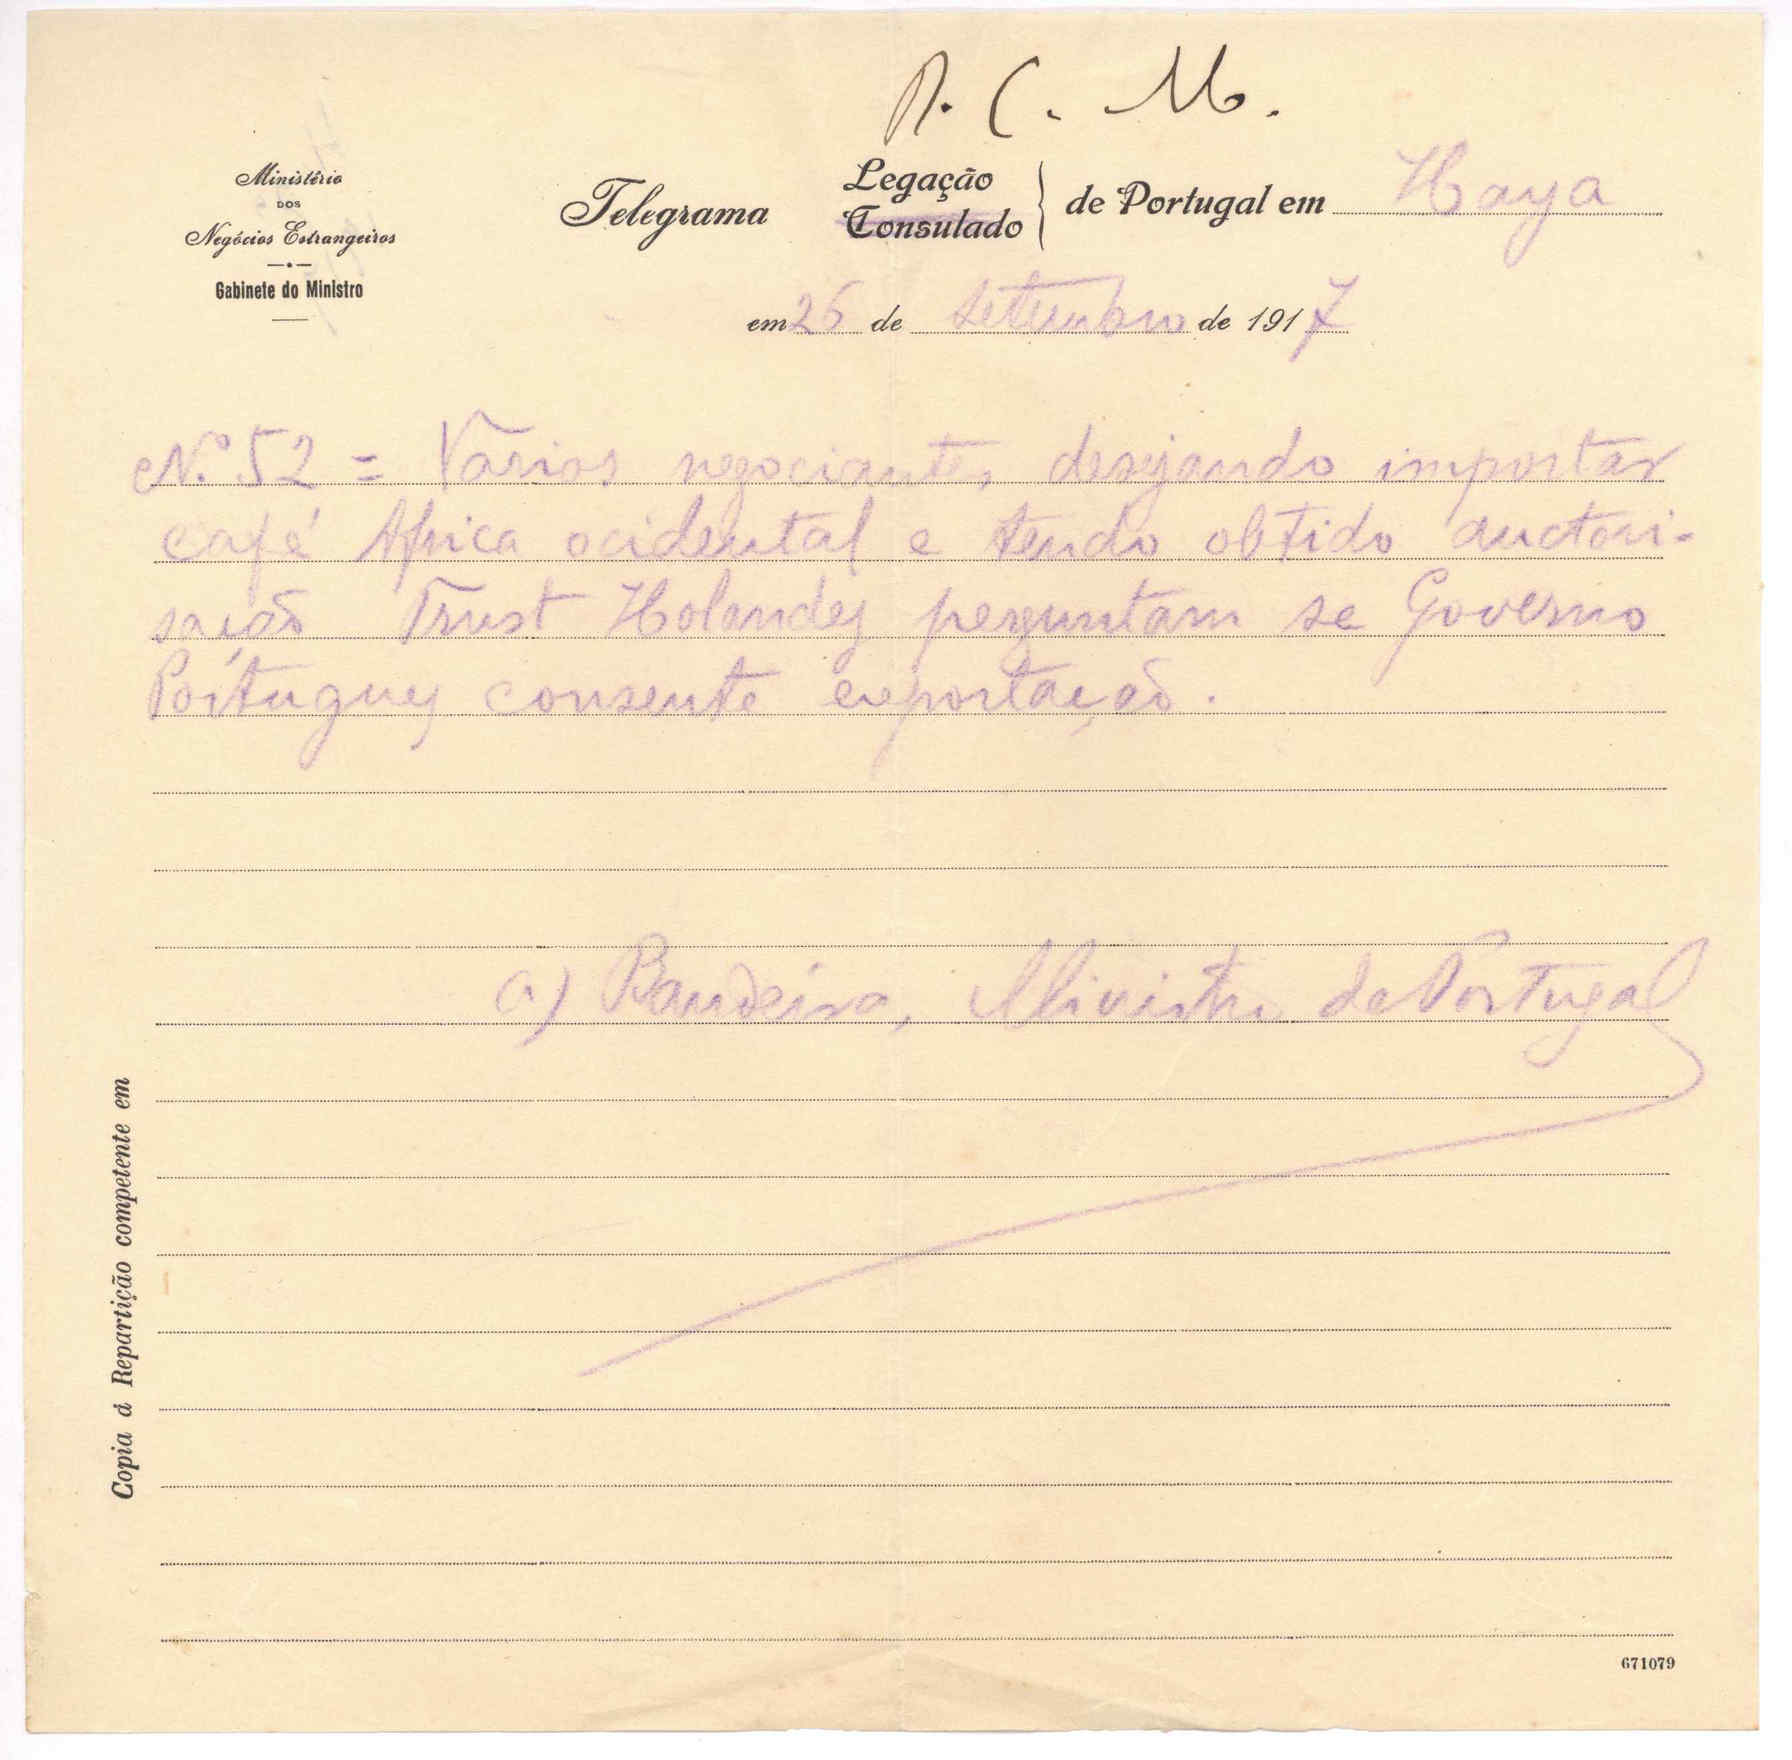 R. C. M.
Ministério
DOS
Negócios Estrangeiros
Gabinete do Ministro
Telegrama
Legação
Consulado
de Portugal em Haya
em 26 de setembro de 1917
Nº 52 = Varios negociantes, desejando importar
café Africa ocidental e tendo obtido auctori-
sação Trust Holandez perguntam se Governo
Portuguez consente exportação.
a) Bandeira, Ministro de Portugal
Copia á Repartição competente em
671079